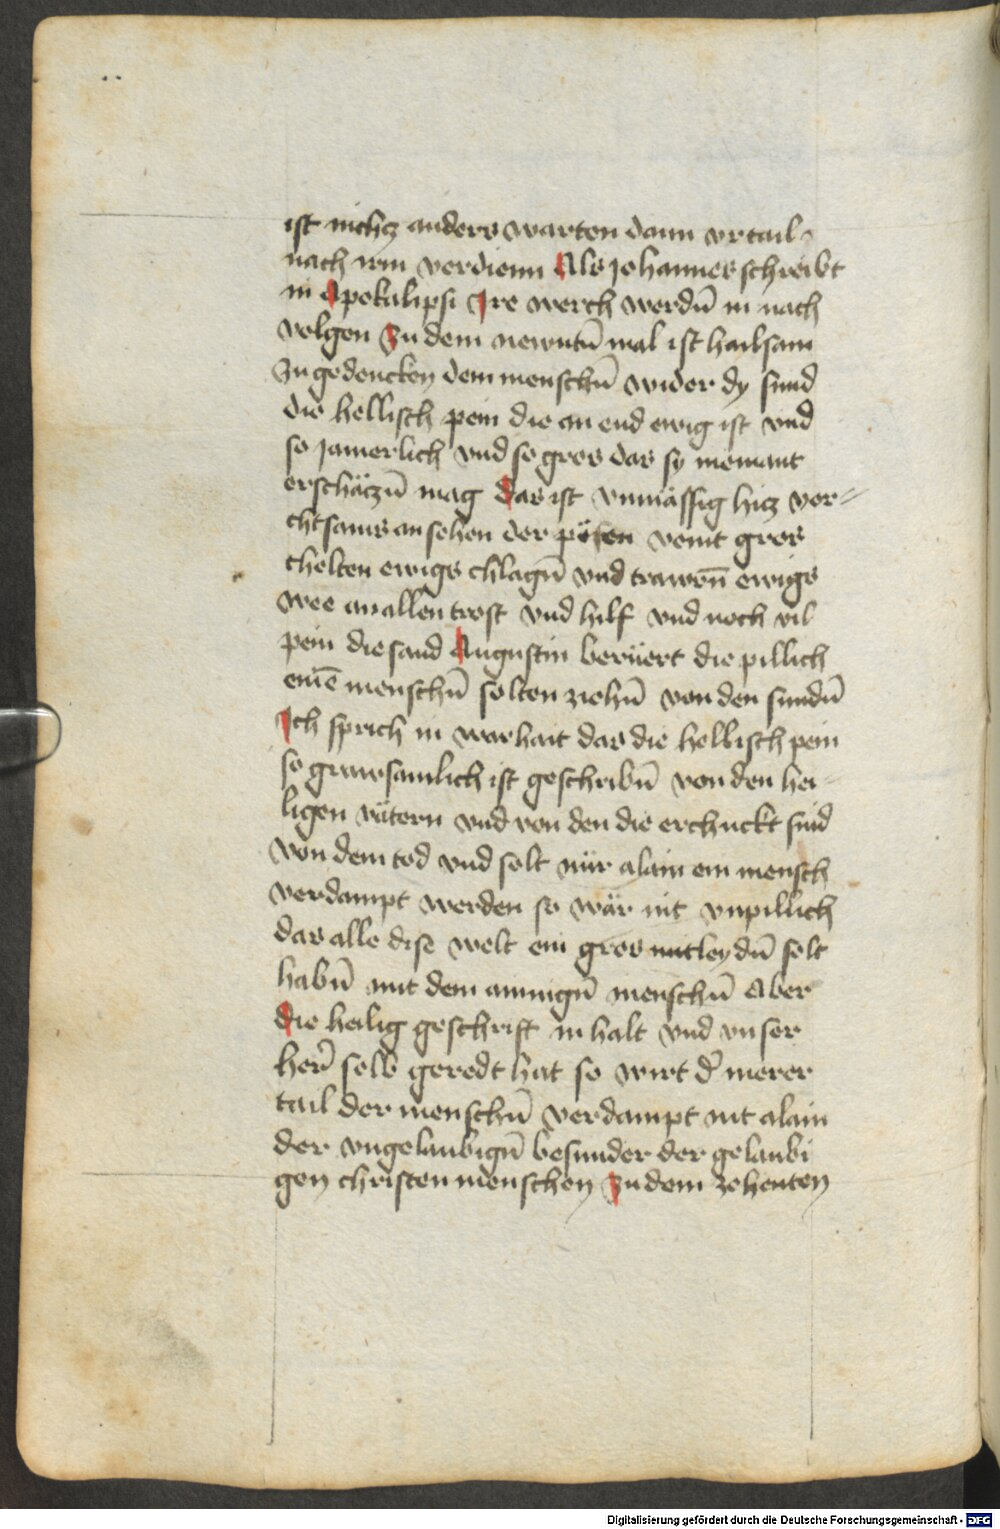 ist nichcz anders warten dann vrtail
nach irm verdienn Als Johannes schreibt
in Apokalipsi Ire werch werdn̄ in nach
volgen Zu dem newntn̄ mal ist hailsam
Zu gedencken dem menschn̄ wider dy sund
die hellisch pein die an end ewig ist vnd
so Jamerlich vnd so gros das sy niemant
erschäczn̄ mag das ist vnmässig hicz vor-
chtsams ansehen der pösen veint gros
chelten ewigs chlagn̄ vnd trawrn̄ ewigs
wee an allen trost vnd hilf vnd noch vil
pein die sand Augustin berüert die pillich
einē menschn̄ solten ziehn̄ von den sundn̄
Ich sprich in warhait das die hellisch pein
so grawsamlich ist geschribn̄ von den hei-
ligen vätern vnd von den die erchuckt sind
von dem tod vnd solt nür alain ein mensch
verdampt werden so wär nit vnpillich
das alle dise welt ein gros mitleydn̄ solt
habn̄ mit dem ainnign̄ menschn̄ Aber
die heilig geschrift in halt vnd vnser
her̄ selb geredt hat so wirt d̄ merer
tail der menschn̄ verdampt nit alain
der vngelaubign̄ besunder der gelaubi
gen christen menschen Zu dem zehenten
Digitalisierung gefördert durch die Deutsche Forschungsgemeinschaft - DFG